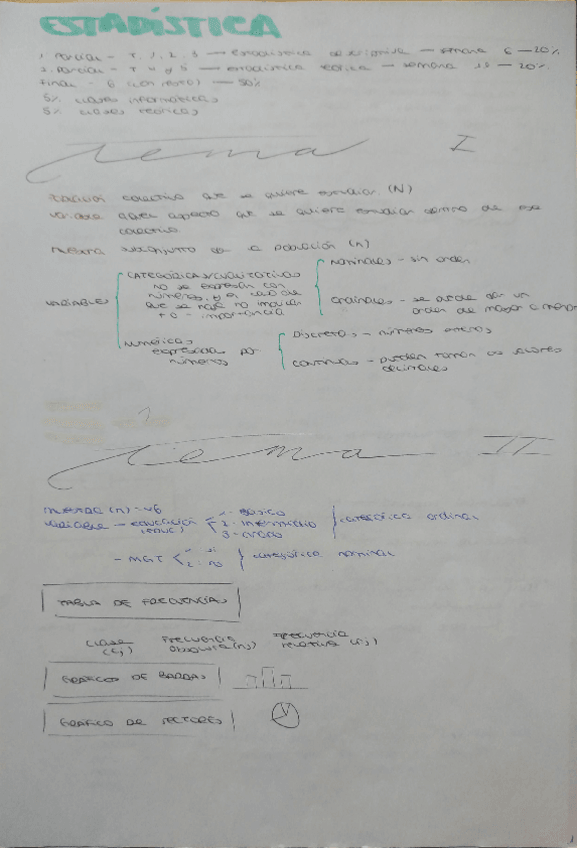 ESTADÍSTICA
1 parcial - T. 1, 2, 3 — estadística descriptiva — semana 6 — 20%
2. parcial - T 4 y 5 — estadística teórica — semana — 20%
final - 6 (con resto) — 50%
5% clases informáticas
5% clases teóricas
Tema I
colectivo que se quiere estudiar (N)
variable aspecto que se quiere estudiar dentro de ese
colectivo
muestra subconjunto de la población (n)
VARIABLES
CATEGÓRICAS/CUALITATIVAS
no se expresan con
números, y el caso de
que se haga no implican
+ o - importancia
nominales - sin orden
ordinales - se puede dar un
orden de mayor a menor
NUMÉRICAS
expresadas por
números
Discretas - números enteros
continuas - pueden tomar los valores
decimales
Tema II
muestra (n) - 46
variable - educación 1 - básico
(educ) 2 - intermedio } categórica ordinal
3 -
- MGT 1 - si } categórica nominal
2 - no
TABLA DE FRECUENCIAS
clase Frecuencia Frecuencia
(cj) absoluta (nj) relativa (fj)
GRÁFICOS DE BARRAS
GRÁFICO DE SECTORES